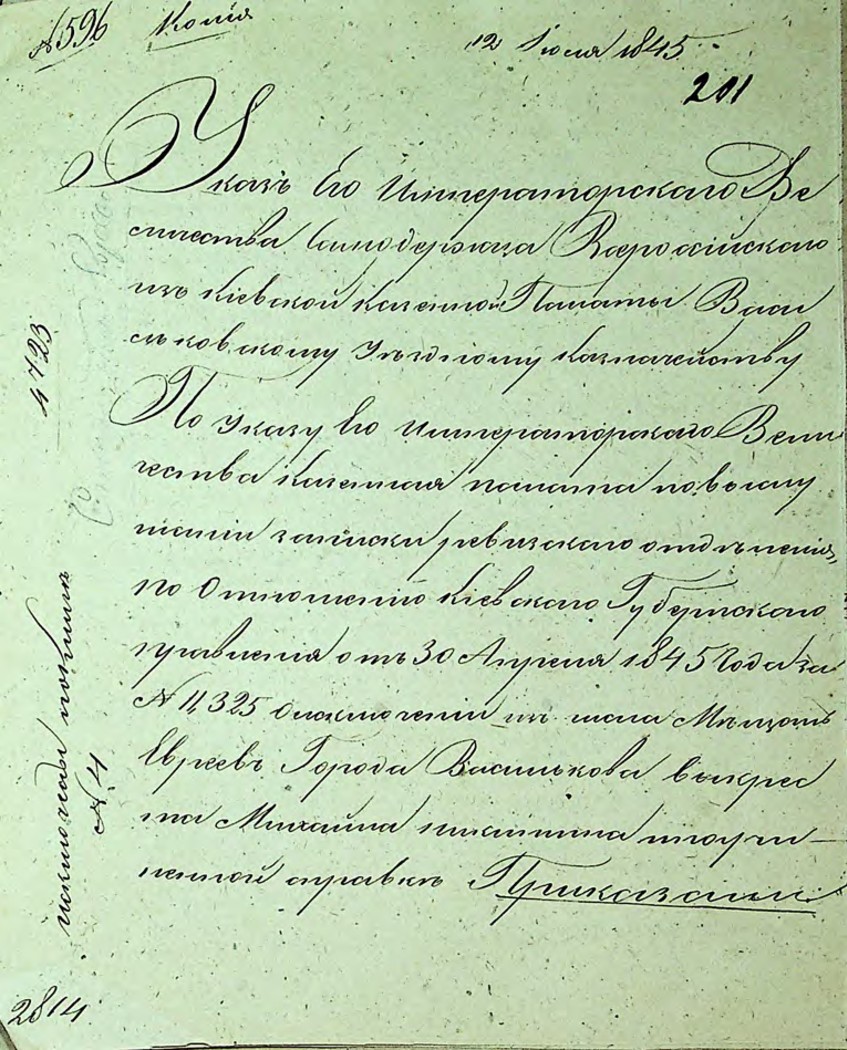 № 596 Копія
12 Іюля 1845
201
Указъ Его Императорскаго Ве
личества Самодержца Всероссійскаго
изъ Кіевской Казенной Палаты Васи
льковскому Уѣздному Казначейству
По Указу Его Императорскаго Вели
чества Казенная палата по выслу
шаніи записки ревизскаго отдѣленія,
по Отношенію Кіевскаго Губернскаго
правленія отъ 30 Апреля 1845 Года за
№ 11,325 о исключеніи изъ числа Мѣщанъ
Евреевъ Города Василькова выкрес
та Михаила по учи
ненной справкѣ Приказали:
4723
№ 4
2814